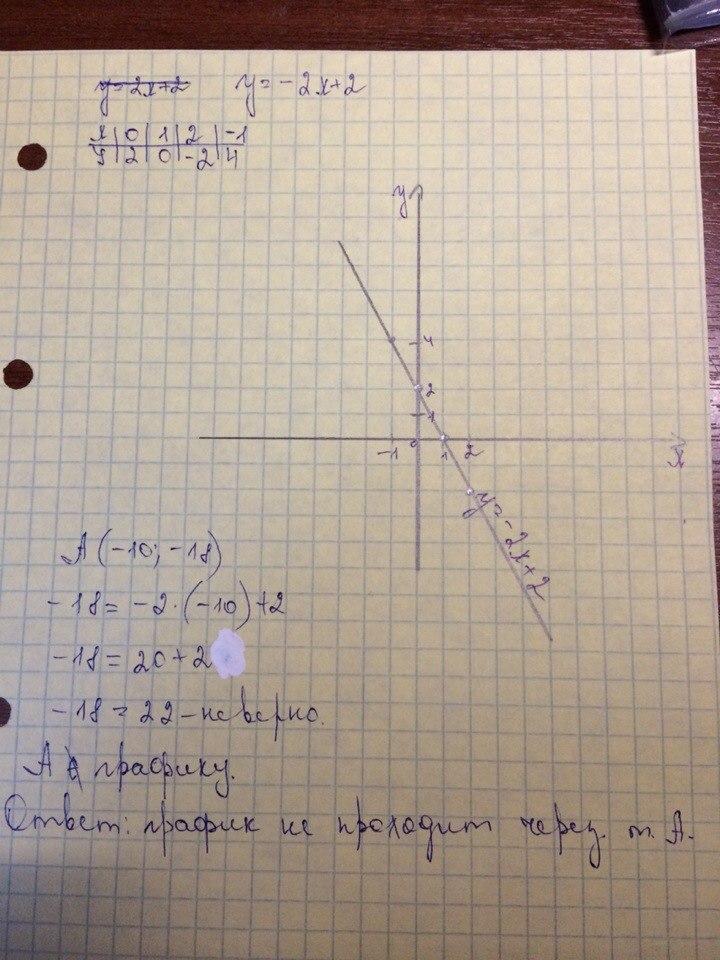 y=2x+2 y=-2x+2
x | 0 | 1 | 2 | -1
y | 2 | 0 | -2 | 4
y
4
2
1
-1 0 1 2 x
y=-2x+2
A(-10; -18)
-18=-2·(-10)+2
-18=20+2
-18=22-неверно.
A ∉ графику.
Ответ: график не проходит через т. А.